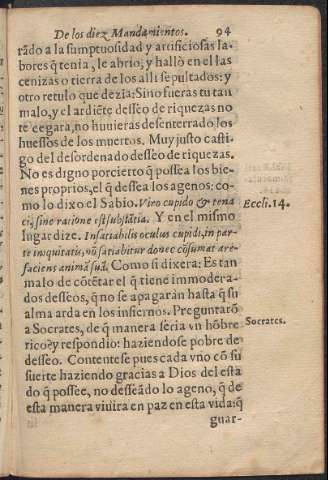 De los diez Mandamientos. 94
rãdo a la sumptuosidad y artificiosas la-
bores q̃ tenia, le abrio, y hallò en el las
cenizas o tierra de los alli sepultados: y
otro retulo que dezia: Sino fueras tu tan
malo, y el ardiẽte desseo de riquezas no
te cegara, no huuieras desenterrado los
huessos de los muertos. Muy justo casti-
go del desordenado desseo de riquezas.
No es digno porcierto q̃ possea los bie-
nes proprios, el q̃ dessea los agenos: co-
mo lo dixo el Sabio. Viro cupido & tena
ci, sine ratione est substãtia. Y en el mismo
Eccli. 14.
lugar dize. Insatiabilis oculus cupidi, in par-
te iniquitatis, nũ satiabitur donec cõsumat are-
faciens animã suã. Como si dixera: Es tan
malo de cõtẽtar el q̃ tiene immodera-
dos desseos, q̃ no se apagarán hasta q̃ su
alma arda en los infiernos. Preguntarõ
a Socrates, de q̃ manera seria vn hõbre
Socrates.
rico, y respondio: haziendose pobre de
desseo. Contentese pues cada vno cõ su
suerte haziendo gracias a Dios del esta
do q̃ possee, no desseãdo lo ageno, q̃ de
esta manera viuira en paz en esta vida: q̃
guar-